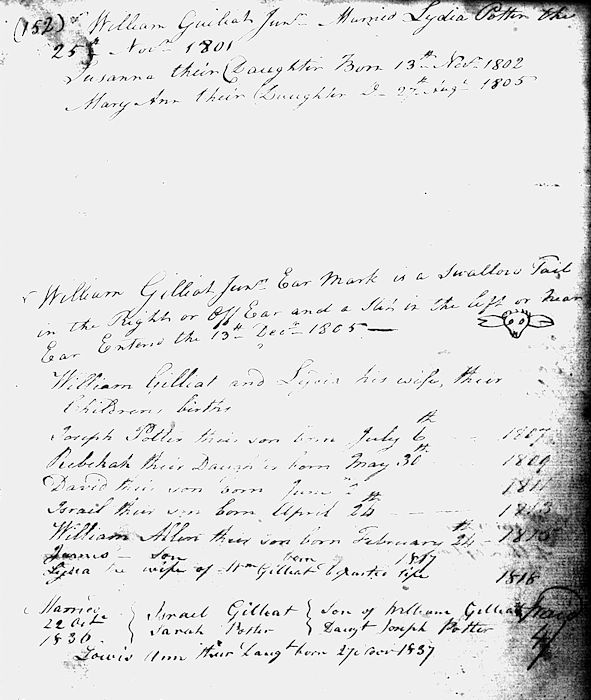 (152) William Gilliat Junr. Married Lydia Potter the
25th Novr. 1801
Susanna their Daughter Born 13th Novr. 1802
Mary Ann their Daughter Do 27th Augt 1805
William Gilliat Junr. Ear Mark is a Swallow Tail
in the Right or Off Ear and a Slit in the left or near
Ear Entered the 13th Decr. 1805
William Gilliat and Lydia his wife, their
Childrens births
Joseph Potter their son born July 6th 1807
Rebekah their Daughter born May 30th 1809
David their son born June 1811
Israel their son born April 24th 1813
William Allen their son born February 24th
James son born 1817
Lydia the wife of Wm Gilliat Departed life 1818
Married
22 Octr
1836
Israel Gilliat
Sarah Potter
Son of William Gilliat
Daugt Joseph Potter
Ann their Daugt born 1837